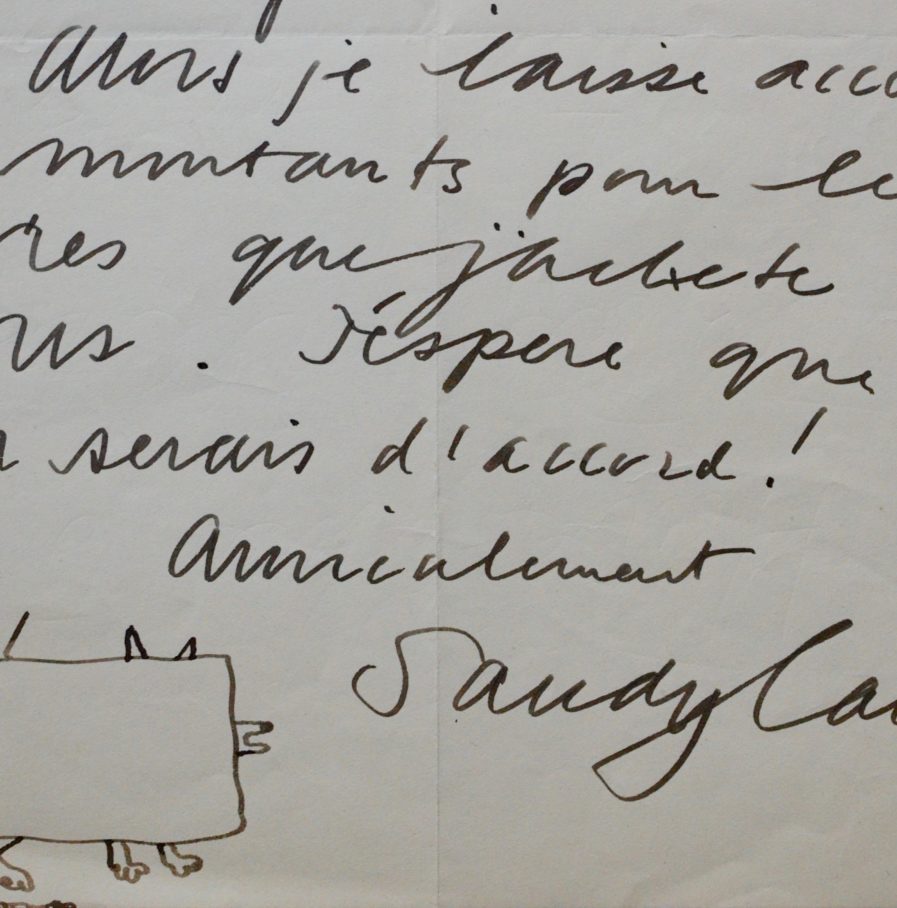 Alors je laisse acco
montants pour le
res que j'achete
us. J'éspere que
serais d'accord!
Amicalement
Sandy Ca